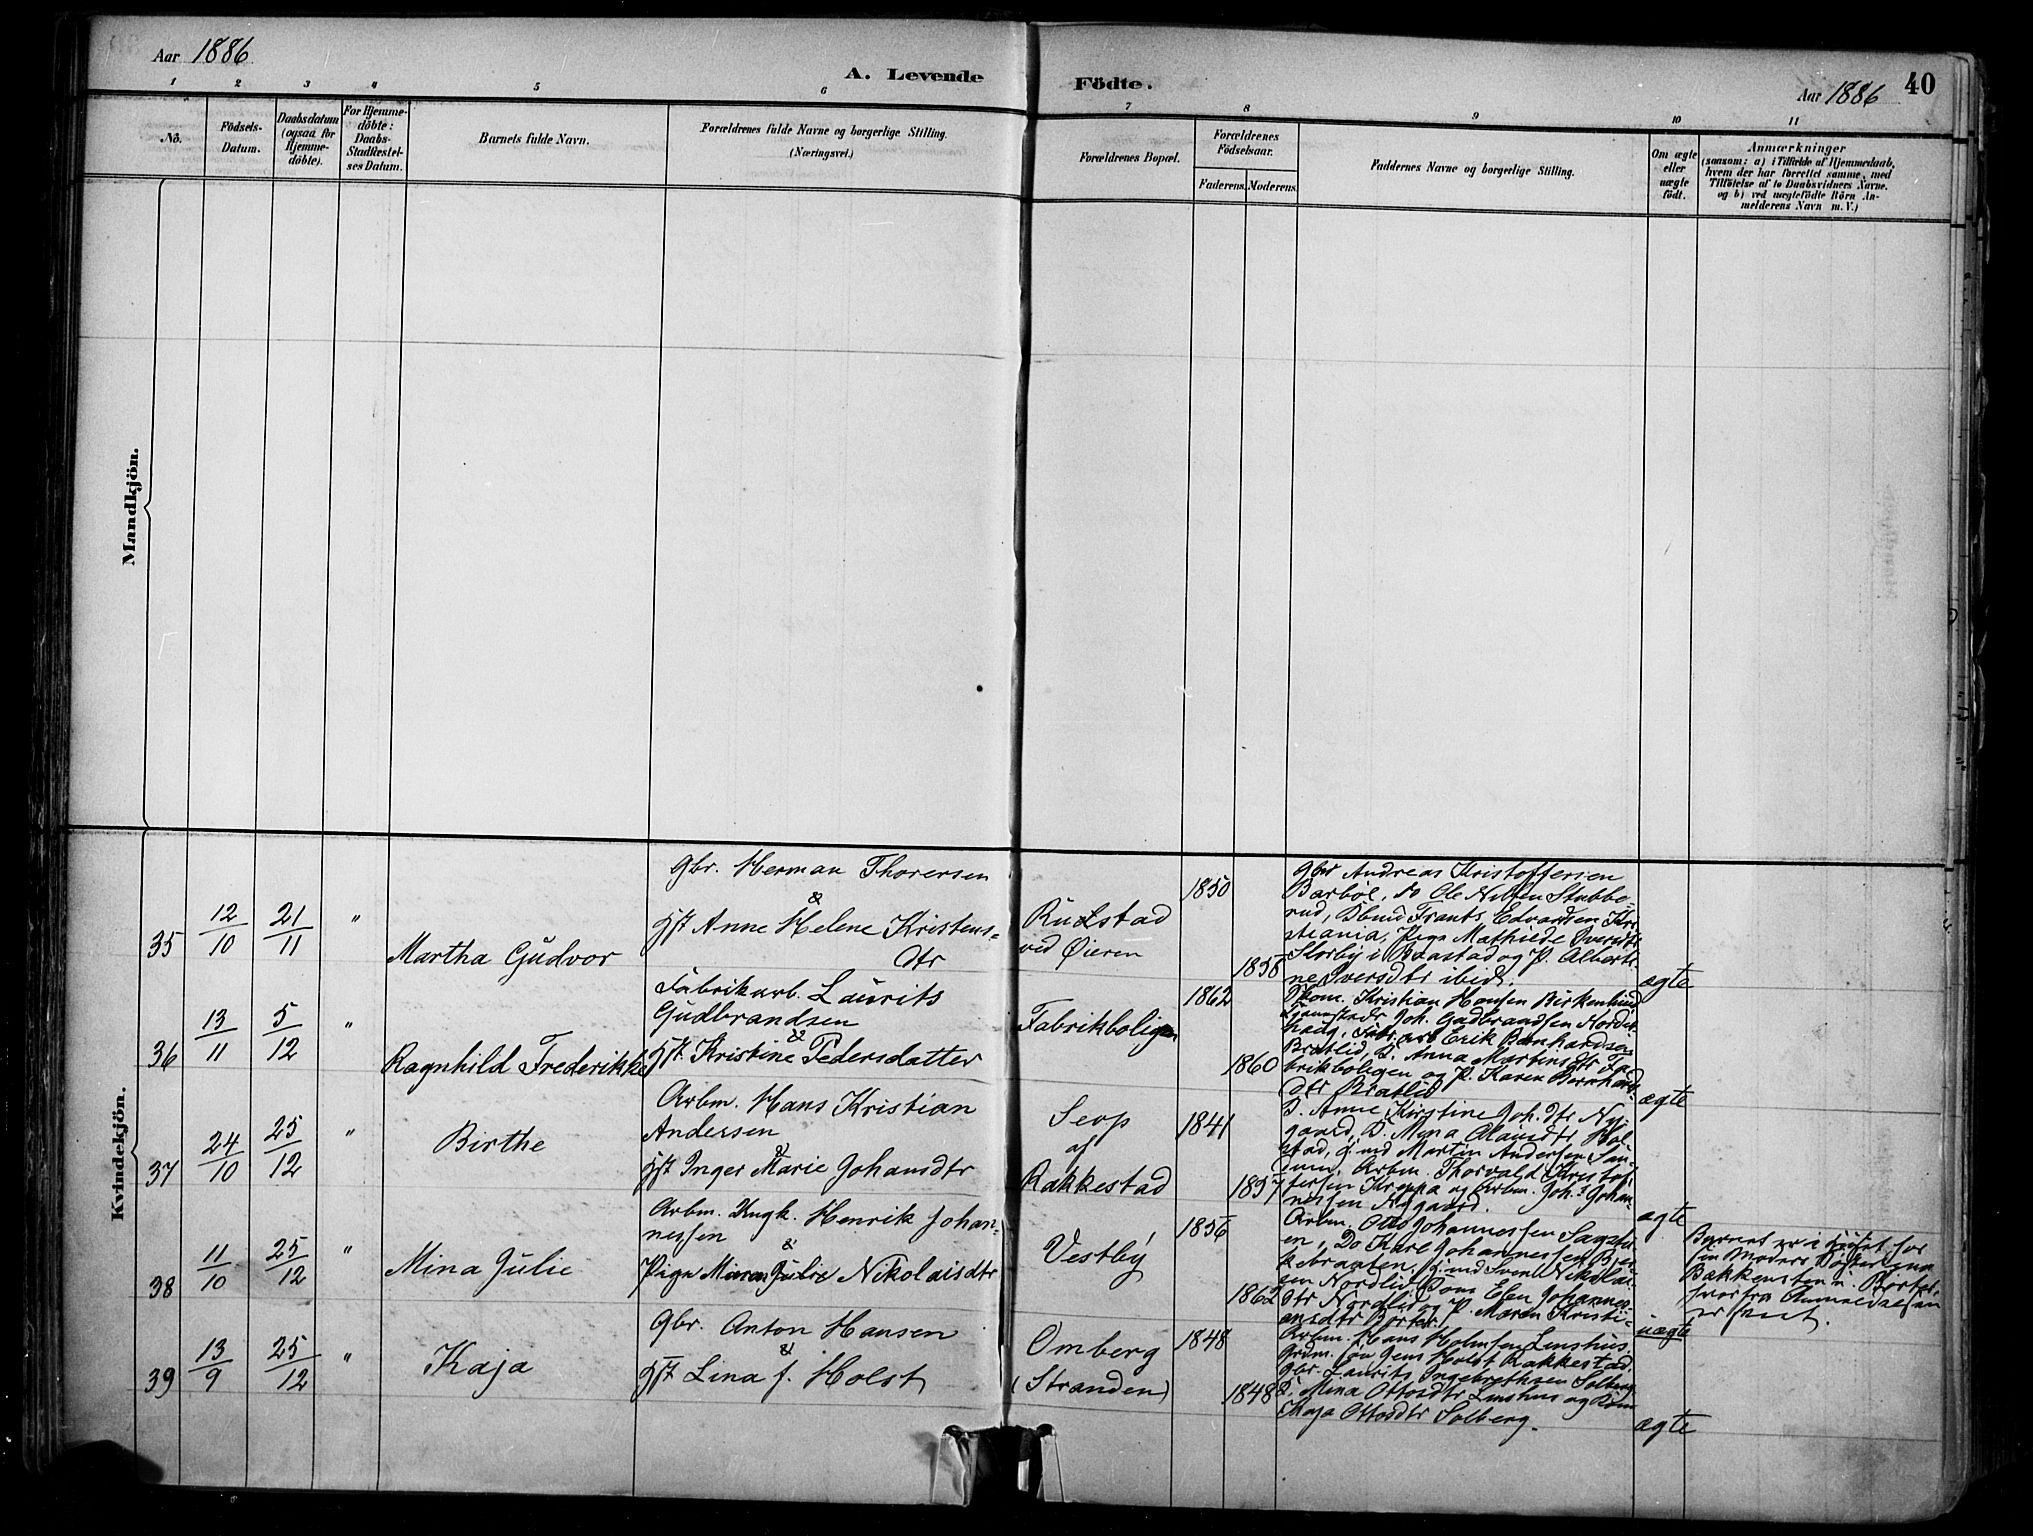 Aar 1886
A. Levende Födte.
Aar 1886 40
1 2 3 4 5 6 7 8 9 10 11
No.
Födsels-
Datum.
Daabsdatum
(ogsaa for
Hjemme-
döbte).
For Hjemme-
döbte:
Daabs-
Stadfæstel-
ses Datum.
Barnets fulde Navn.
Forældrenes fulde Navne og borgerlige Stilling.
(Næringsvei.)
Forældrenes Bopæl.
Forældrenes
Födselsaar.
Faderens. Moderens.
Faddernes Navne og borgerlige Stilling.
Om ægte
eller
uægte
födt.
Anmærkninger
(saasom: a) i Tilfælde af Hjemmedaab,
hvem der har forrettet samme, med
Tilföielse af to Daabsvidners Navne.
og b) ved uægtefödte Börn An-
melderens Navn m. V.)
Mandkjön.
Kvindekjön.
35
12/10
21/11
"
Martha Gudvor
Gbr. Herman Thoresen
&
Hst Anne Helene Kristens=
dtr
Rudstad
ved Øieren
1850
1858
Gbr Andreas Kristoffersen
Barbøl, do Ole Nilsen Stubbe-
rud, Frants Edvardsen Kri-
stiania, Pige Mathilde Iversdtr
Slorby i Baastad og P. Alberti-
ne Iversdtr ibid.
ægte
36
13/11
5/12
"
Ragnhild Frederikke
Fabrikarb. Laurits
Gudbrandsen
&
Hst. Kristine Pedersdatter
Fabrikboligen
1862
1860
Skom. Kristian Hansen Birkenlund
Joh. Gudbrandsen Norder-
haug, Fabr. arb Erik Bernhardsen
Bratlid, Anna Martinsdtr Fa-
brikboligen og P. Karen Bernhards-
dtr Bratlid
ægte
37
24/10
25/12
"
Birthe
Arbm. Hans Kristian
Andersen
&
Hst Inger Marie Johansdtr
Seop
af
Rakkestad
1841
1857
Anne Kirstine Joh. dtr Ny-
gaard, Mina Olausdtr
Martin Andersen
Arbm. Thorvald Kristof-
fersen Kroppa og Arbm. Joh.s Johan-
nessen Nygaard.
ægte
38
11/10
25/12
"
Mina Julie
Arbm. Ungk. Henrik Johan-
nessen
&
Pige Minna Julie Nikolaisdtr
Vestby
1856
1862
Arbm. Otto Johannessen
Do Karl Johannessen
kebraaten, Svend Nikolai-
sen Nordlid, Johannes-
dtr Nordlid og P. Maren Kristi-
ansdtr Børter
uægte
Barnet er
sin Moders
Bakkensten
hvorfra Anmeldelsen
er sent.
39
13/9
25/12
"
Kaja
Gbr. Anton Hansen
&
Hst Lina f. Holst
Omberg
(Stranden)
1848
1848
Arbm. Hans Holmsen Linshus
Jens Holst Rakkestad
Gbr. Laurits Ingebrethsen Solberg
Mina Ottosdtr Linshus og Kone
Kaja Ottosdtr Solberg.
ægte